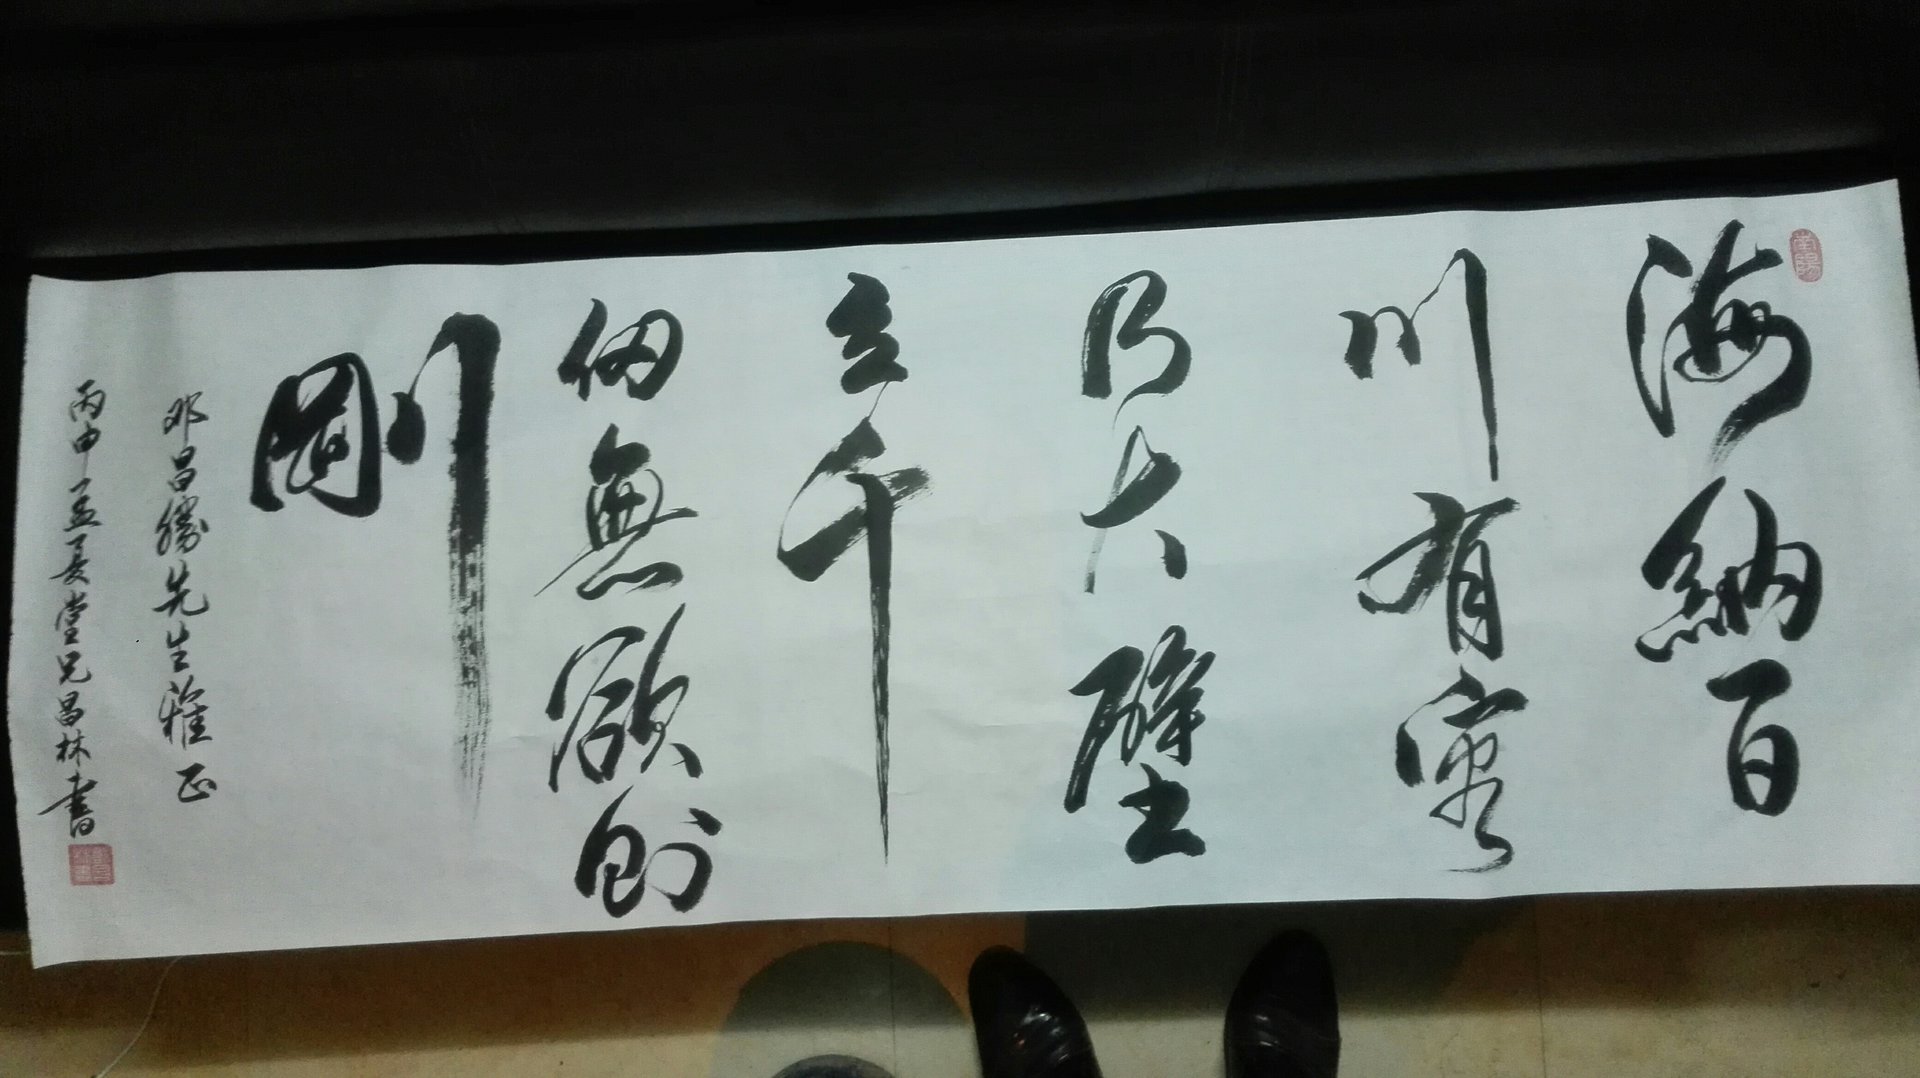 南陽
海納百
川有容
乃大壁
立千
仞無欲則
剛
邓昌勝先生雅正
丙申孟夏堂兄昌林書